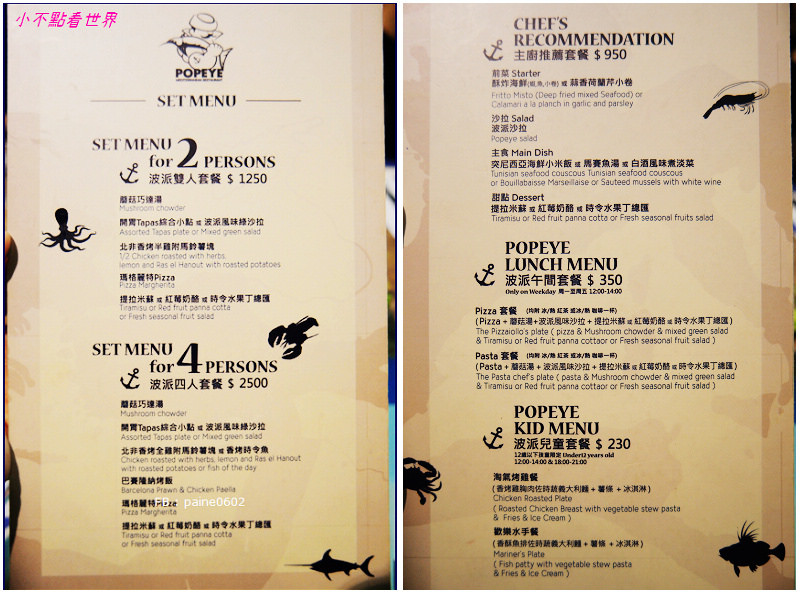 小不點看世界
POPEYE
MEDITERRANEAN RESTAURANT
SET MENU
SET MENU
for 2 PERSONS
波派雙人套餐 $ 1250
蘑菇巧達湯
Mushroom chowder
開胃Tapas綜合小點 或 波派風味綠沙拉
Assorted Tapas plate or Mixed green salad
北非香烤半雞附馬鈴薯塊
1/2 Chicken roasted with herbs,
lemon and Ras el Hanout with roasted potatoes
瑪格麗特Pizza
Pizza Margherita
提拉米蘇 或 紅莓奶酪 或 時令水果丁總匯
Tiramisu or Red fruit panna cotta
or Fresh seasonal fruit salad
SET MENU
for 4 PERSONS
波派四人套餐 $ 2500
蘑菇巧達湯
Mushroom chowder
開胃Tapas綜合小點 或 波派風味綠沙拉
Assorted Tapas plate or Mixed green salad
北非香烤全雞附馬鈴薯塊 或 香烤時令魚
Chicken roasted with herbs, lemon and Ras el Hanout
with roasted potatoes or fish of the day
巴賽隆納烤飯
Barcelona Prawn & Chicken Paella
瑪格麗特Pizza
Pizza Margherita
FB : paine0602
提拉米蘇 或 紅莓奶酪 或 時令水果丁總匯
Tiramisu or Red fruit panna cotta
or Fresh seasonal fruit salad
CHEF'S
RECOMMENDATION
主廚推薦套餐 $ 950
前菜 Starter
酥炸海鮮(蝦,魚,小卷) 或 蒜香荷蘭芹小卷
Fritto Misto (Deep fried mixed Seafood) or
Calamari a la planch in garlic and parsley
沙拉 Salad
波派沙拉
Popeye salad
主食 Main Dish
突尼西亞海鮮小米飯 或 馬賽魚湯 或 白酒風味煮淡菜
Tunisian seafood couscous Tunisian seafood couscous
or Bouillabaisse Marseillaise or Sauteed mussels with white wine
甜點 Dessert
提拉米蘇 或 紅莓奶酪 或 時令水果丁總匯
Tiramisu or Red fruit panna cottar or Fresh seasonal fruits salad
POPEYE
LUNCH MENU
波派午間套餐 $ 350
Only on Weekday 周一至周五 12:00-14:00
Pizza 套餐 (均附 冰/熱 紅茶 或冰/熱 咖啡一杯)
( Pizza + 蘑菇湯+波派風味沙拉 + 提拉米蘇 或 紅莓奶酪 或 時令水果丁總匯 )
The Pizzaiollo's plate ( pizza & Mushroom chowder & mixed green salad
& Tiramisu or Red fruit panna cottaor or Fresh seasonal fruit salad )
Pasta 套餐 (均附 冰/熱 紅茶 或冰/熱 咖啡一杯)
( Pasta + 蘑菇湯 + 波派風味沙拉 + 提拉米蘇 或 紅莓奶酪 或 時令水果丁總匯 )
The Pasta chef's plate ( pasta & Mushroom chowder & mixed green salad
& Tiramisu or Red fruit panna cottaor or Fresh seasonal fruit salad )
POPEYE
KID MENU
波派兒童套餐 $ 230
12歲以下孩童限定 Under12 years old
12:00-14:00 & 18:00-21:00
淘氣烤雞餐
( 香烤雞胸肉佐時蔬義大利麵 + 薯條 + 冰淇淋 )
Chicken Roasted Plate
( Roasted Chicken Breast with vegetable stew pasta
& Fries & Ice Cream )
歡樂水手餐
( 香酥魚排佐時蔬義大利麵 + 薯條 + 冰淇淋 )
Mariner's Plate
( Fish patty with vegetable stew pasta
& Fries & Ice Cream )